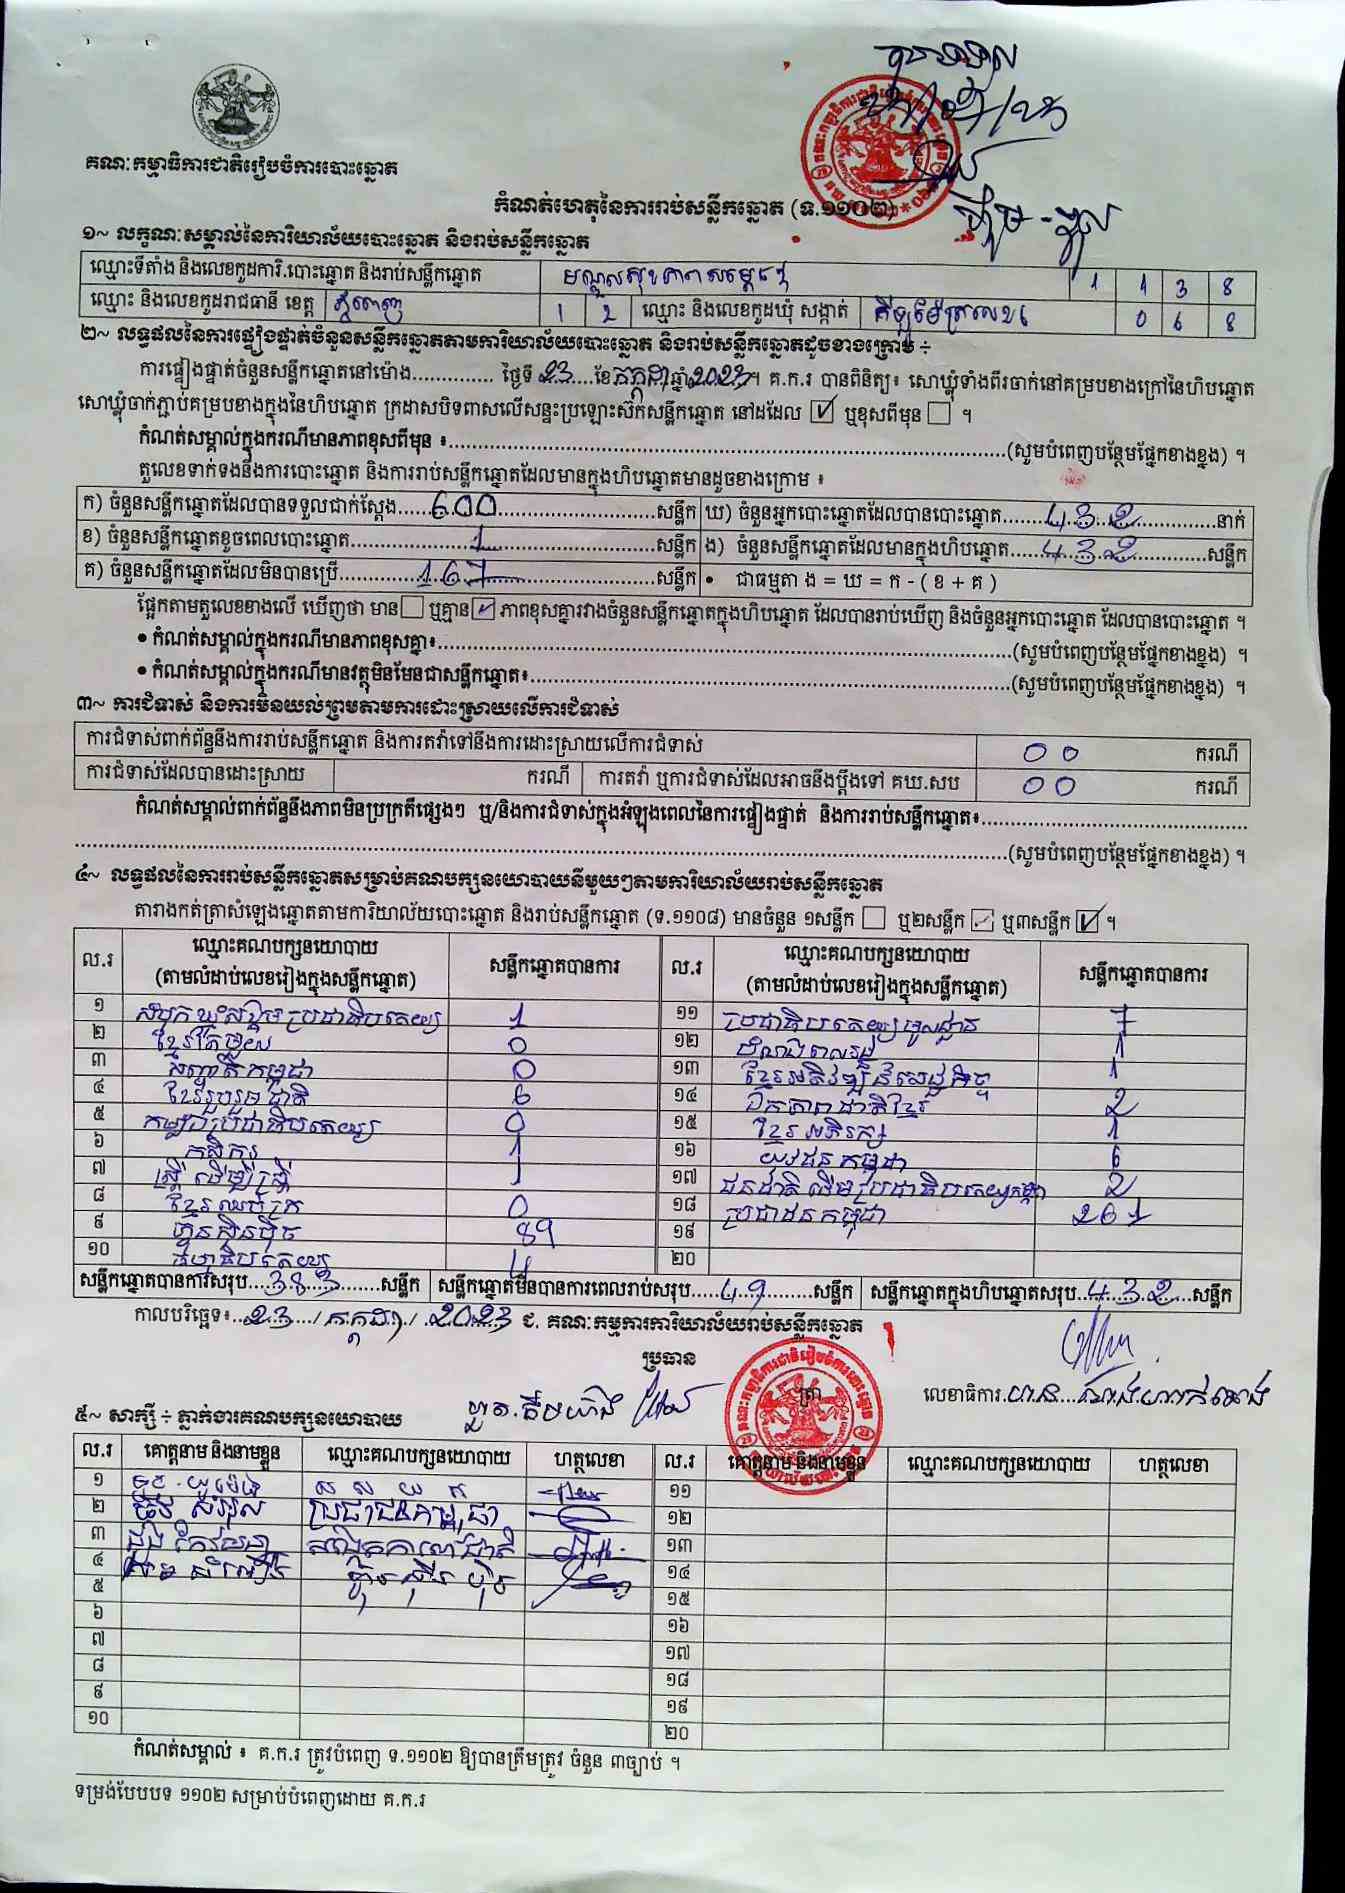 គណៈកម្មាធិការជាតិរៀបចំការបោះឆ្នោត
កំណត់ហេតុនៃការរាប់សន្លឹកឆ្នោត (ទ.១១០២)
១~ លក្ខណៈសម្គាល់នៃការិយាល័យបោះឆ្នោត និងរាប់សន្លឹកឆ្នោត
ឈ្មោះទីតាំង និងលេខកូដការិ.បោះឆ្នោត និងរាប់សន្លឹកឆ្នោត មណ្ឌលសុខភាព 1 1 3 8
ឈ្មោះ និងលេខកូដរាជធានី ខេត្ត ភ្នំពេញ 1 2 ឈ្មោះ និងលេខកូដឃុំ សង្កាត់ គីឡូម៉ែត្រលេខ៦ 0 6 8
២~ លទ្ធផលនៃការផ្ទៀងផ្ទាត់ចំនួនសន្លឹកឆ្នោតតាមការិយាល័យបោះឆ្នោត និងរាប់សន្លឹកឆ្នោតដូចខាងក្រោម ÷
ការផ្ទៀងផ្ទាត់ចំនួនសន្លឹកឆ្នោតនៅម៉ោង.............. ថ្ងៃទី 23 ខែ កក្កដា ឆ្នាំ 2023 ។ គ.ក.រ បានពិនិត្យ៖ សោឃ្លុំទាំងពីរចាក់នៅគម្របខាងក្រៅនៃហិបឆ្នោត
សោឃ្លុំចាក់ភ្ជាប់គម្របខាងក្នុងនៃហិបឆ្នោត ក្រដាសបិទពាសលើសន្ទះប្រឡោះស៊កសន្លឹកឆ្នោត នៅដដែល ☑ ឬខុសពីមុន ☐ ។
កំណត់សម្គាល់ក្នុងករណីមានភាពខុសពីមុន ៖.....(សូមបំពេញបន្ថែមផ្នែកខាងខ្នង) ។
តួលេខទាក់ទងនឹងការបោះឆ្នោត និងការរាប់សន្លឹកឆ្នោតដែលមានក្នុងហិបឆ្នោតមានដូចខាងក្រោម ៖
ក) ចំនួនសន្លឹកឆ្នោតដែលបានទទួលជាក់ស្តែង 600 សន្លឹក ឃ) ចំនួនអ្នកបោះឆ្នោតដែលបានបោះឆ្នោត 432 នាក់
ខ) ចំនួនសន្លឹកឆ្នោតខូចពេលបោះឆ្នោត 1 សន្លឹក ង) ចំនួនសន្លឹកឆ្នោតដែលមានក្នុងហិបឆ្នោត 432 សន្លឹក
គ) ចំនួនសន្លឹកឆ្នោតដែលមិនបានប្រើ 167 សន្លឹក • ជាធម្មតា ង = ឃ = ក - ( ខ + គ )
ផ្អែកតាមតួលេខខាងលើ ឃើញថា មាន ☐ ឬគ្មាន ☑ ភាពខុសគ្នារវាងចំនួនសន្លឹកឆ្នោតក្នុងហិបឆ្នោត ដែលបានរាប់ឃើញ និងចំនួនអ្នកបោះឆ្នោត ដែលបានបោះឆ្នោត ។
• កំណត់សម្គាល់ក្នុងករណីមានភាពខុសគ្នា៖.....(សូមបំពេញបន្ថែមផ្នែកខាងខ្នង) ។
• កំណត់សម្គាល់ក្នុងករណីមានវត្ថុមិនមែនជាសន្លឹកឆ្នោត៖.....(សូមបំពេញបន្ថែមផ្នែកខាងខ្នង) ។
៣~ ការជំទាស់ និងការមិនយល់ព្រមតាមការដោះស្រាយលើការជំទាស់
ការជំទាស់ពាក់ព័ន្ធនឹងការរាប់សន្លឹកឆ្នោត និងការតវ៉ាទៅនឹងការដោះស្រាយលើការជំទាស់ 00 ករណី
ការជំទាស់ដែលបានដោះស្រាយ ករណី ការតវ៉ា ឬការជំទាស់ដែលអាចនឹងប្តឹងទៅ គឃ.សប 00 ករណី
កំណត់សម្គាល់ពាក់ព័ន្ធនឹងភាពមិនប្រក្រតីផ្សេងៗ ឬ/និងការជំទាស់ក្នុងអំឡុងពេលនៃការផ្ទៀងផ្ទាត់ និងការរាប់សន្លឹកឆ្នោត៖.....
.....(សូមបំពេញបន្ថែមផ្នែកខាងខ្នង) ។
៤~ លទ្ធផលនៃការរាប់សន្លឹកឆ្នោតសម្រាប់គណបក្សនយោបាយនីមួយៗតាមការិយាល័យរាប់សន្លឹកឆ្នោត
តារាងកត់ត្រាសំឡេងឆ្នោតតាមការិយាល័យបោះឆ្នោត និងរាប់សន្លឹកឆ្នោត (ទ.១១០៨) មានចំនួន ១សន្លឹក ☐ ឬ២សន្លឹក ☑ ឬ៣សន្លឹក ☑ ។
ល.រ ឈ្មោះគណបក្សនយោបាយ (តាមលំដាប់លេខរៀងក្នុងសន្លឹកឆ្នោត) សន្លឹកឆ្នោតបានការ ល.រ ឈ្មោះគណបក្សនយោបាយ (តាមលំដាប់លេខរៀងក្នុងសន្លឹកឆ្នោត) សន្លឹកឆ្នោតបានការ
១ សំបុកឃ្មុំសង្គមប្រជាធិបតេយ្យ 1 ១១ ប្រជាធិបតេយ្យមូលដ្ឋាន 7
២ ខ្មែរតែមួយ 0 ១២ 1
៣ សញ្ជាតិកម្ពុជា 0 ១៣ ខ្មែរអភិវឌ្ឍន៍សេដ្ឋកិច្ច 1
៤ ខ្មែររួបរួមជាតិ 6 ១៤ ឯកភាពជាតិខ្មែរ 2
៥ កម្លាំងប្រជាធិបតេយ្យ 0 ១៥ ខ្មែរអភិរក្ស 1
៦ កសិករ 1 ១៦ យុវជនកម្ពុជា 6
៧ ស្ត្រីដើម្បីស្ត្រី 1 ១៧ ជនជាតិដើមប្រជាធិបតេយ្យកម្ពុជា 2
៨ ខ្មែរឈប់ក្រ 0 ១៨ ប្រជាជនកម្ពុជា 261
៩ ហ៊្វុនស៊ិនប៉ិច 89 ១៩
១០ ធម្មាធិបតេយ្យ 4 ២០
សន្លឹកឆ្នោតបានការសរុប 383 សន្លឹក សន្លឹកឆ្នោតមិនបានការពេលរាប់សរុប 49 សន្លឹក សន្លឹកឆ្នោតក្នុងហិបឆ្នោតសរុប 432 សន្លឹក
កាលបរិច្ឆេទ៖ 23 / កក្កដា / 2023 ជ. គណៈកម្មការការិយាល័យរាប់សន្លឹកឆ្នោត
ប្រធាន ត្រា លេខាធិការ
៥~ សាក្សី ÷ ភ្នាក់ងារគណបក្សនយោបាយ
ល.រ គោត្តនាម និងនាមខ្លួន ឈ្មោះគណបក្សនយោបាយ ហត្ថលេខា ល.រ គោត្តនាម និងនាមខ្លួន ឈ្មោះគណបក្សនយោបាយ ហត្ថលេខា
១ ស ស យ ក ១១
២ ប្រជាជនកម្ពុជា ១២
៣ ១៣
៤ ហ៊្វុនស៊ិនប៉ិច ១៤
៥ ១៥
៦ ១៦
៧ ១៧
៨ ១៨
៩ ១៩
១០ ២០
កំណត់សម្គាល់ ៖ គ.ក.រ ត្រូវបំពេញ ទ.១១០២ ឱ្យបានត្រឹមត្រូវ ចំនួន ៣ច្បាប់ ។
ទម្រង់បែបបទ ១១០២ សម្រាប់បំពេញដោយ គ.ក.រ